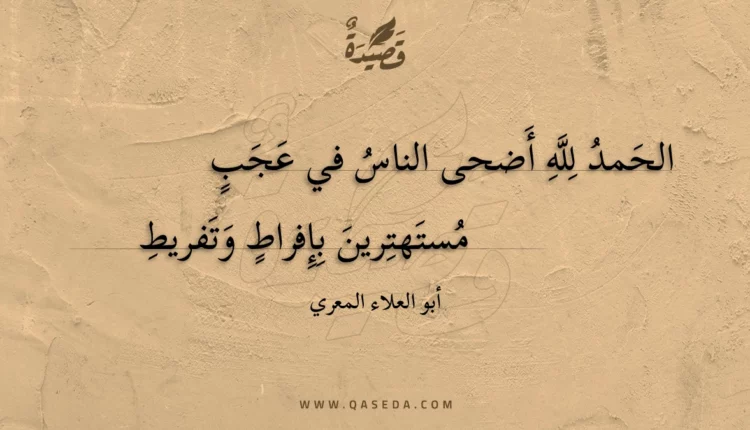 قَصِيدَةٌ
الحَمدُ لِلَّهِ أَضحى الناسُ في عَجَبٍ
مُستَهتِرينَ بِإِفراطٍ وَتَفريطِ
أبو العلاء المعري
WWW.QASEDA.COM